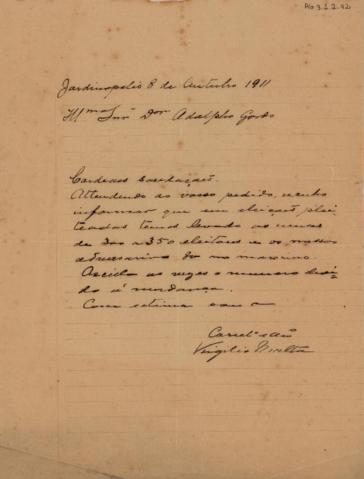 AG 3.1.2.92
Jardinopolis 8 de Outubro 1911
Illmo Snr Dor Adolpho Gordo
Cordeaes saudações.
Attendendo ao vosso pedido, venho
informar que em eleições plei-
teadas temos levado as urnas
de 300 a 350 eleitores e os nossos
adversarios no maximo.
as vezes o numero devi-
do á mudança.
Com estima sou o
Virgilio